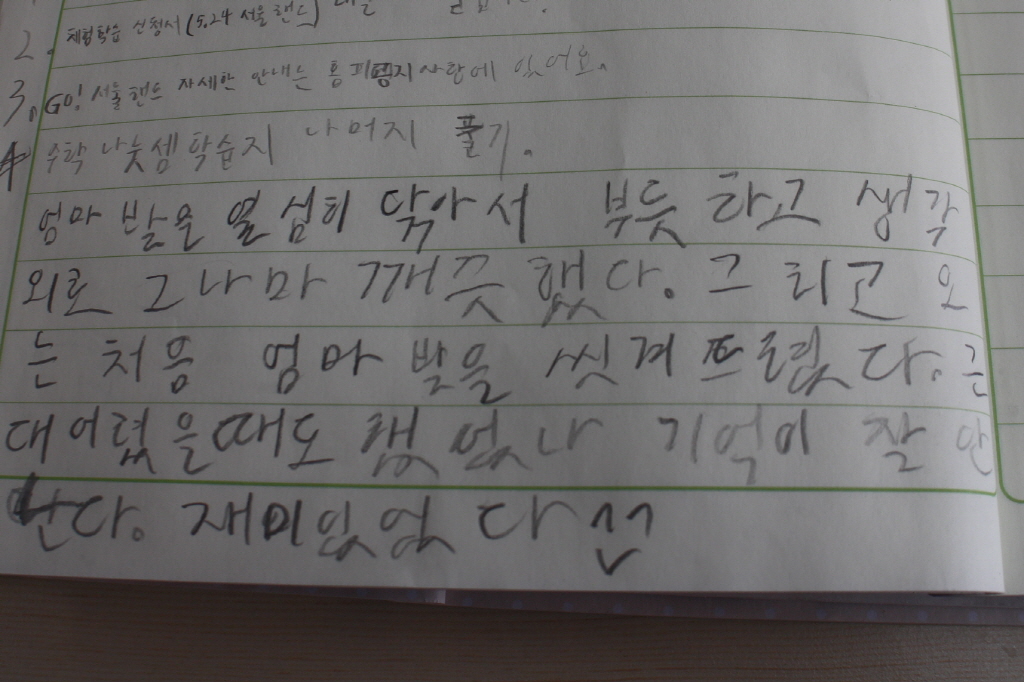 2. 체험학습 신청서(5.24 서울랜드)
3. GO! 서울랜드 자세한 안내는 홈피 공지사항에 있어요.
4 수학 나눗셈 학습지 나머지 풀기.
엄마 발을 열심히 닦아서 뿌듯하고 생각
외로 그나마 깨끗했다. 그리고 오
는 처음 엄마 발을 씻겨 뜨렸다. 근
대 어렸을때도 했었나 기억이 잘 안
난다. 재미있었다